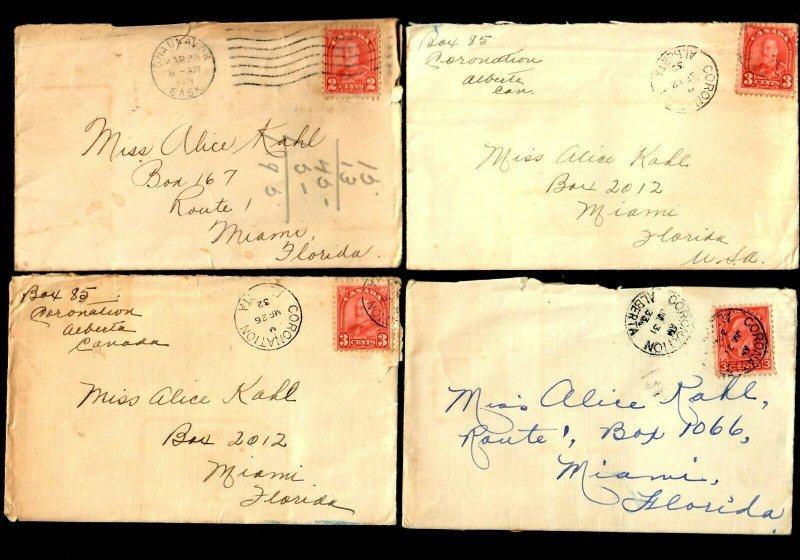 SHAUNAVON
MAR 23
8 - AM
SASK
CANADA
2 CENTS 2
Miss Alice Kahl
Box 167
Route 1
Miami,
Florida.
Box 85
Coronation
Alberta
Can.
CORONATION
ALBERTA
32
CANADA
3 CENTS 3
Miss Alice Kahl
Box 2012
Miami
Florida
U.S.A.
Box 85
Coronation
Alberta
Canada
CORONATION
M
26
32
3 CENTS 3
Miss Alice Kahl
Box 2012
Miami
Florida
CORONATION
AM
31
33
ALBERTA
3 3
Miss Alice Kahl,
Route 1, Box 1066,
Miami,
Florida.